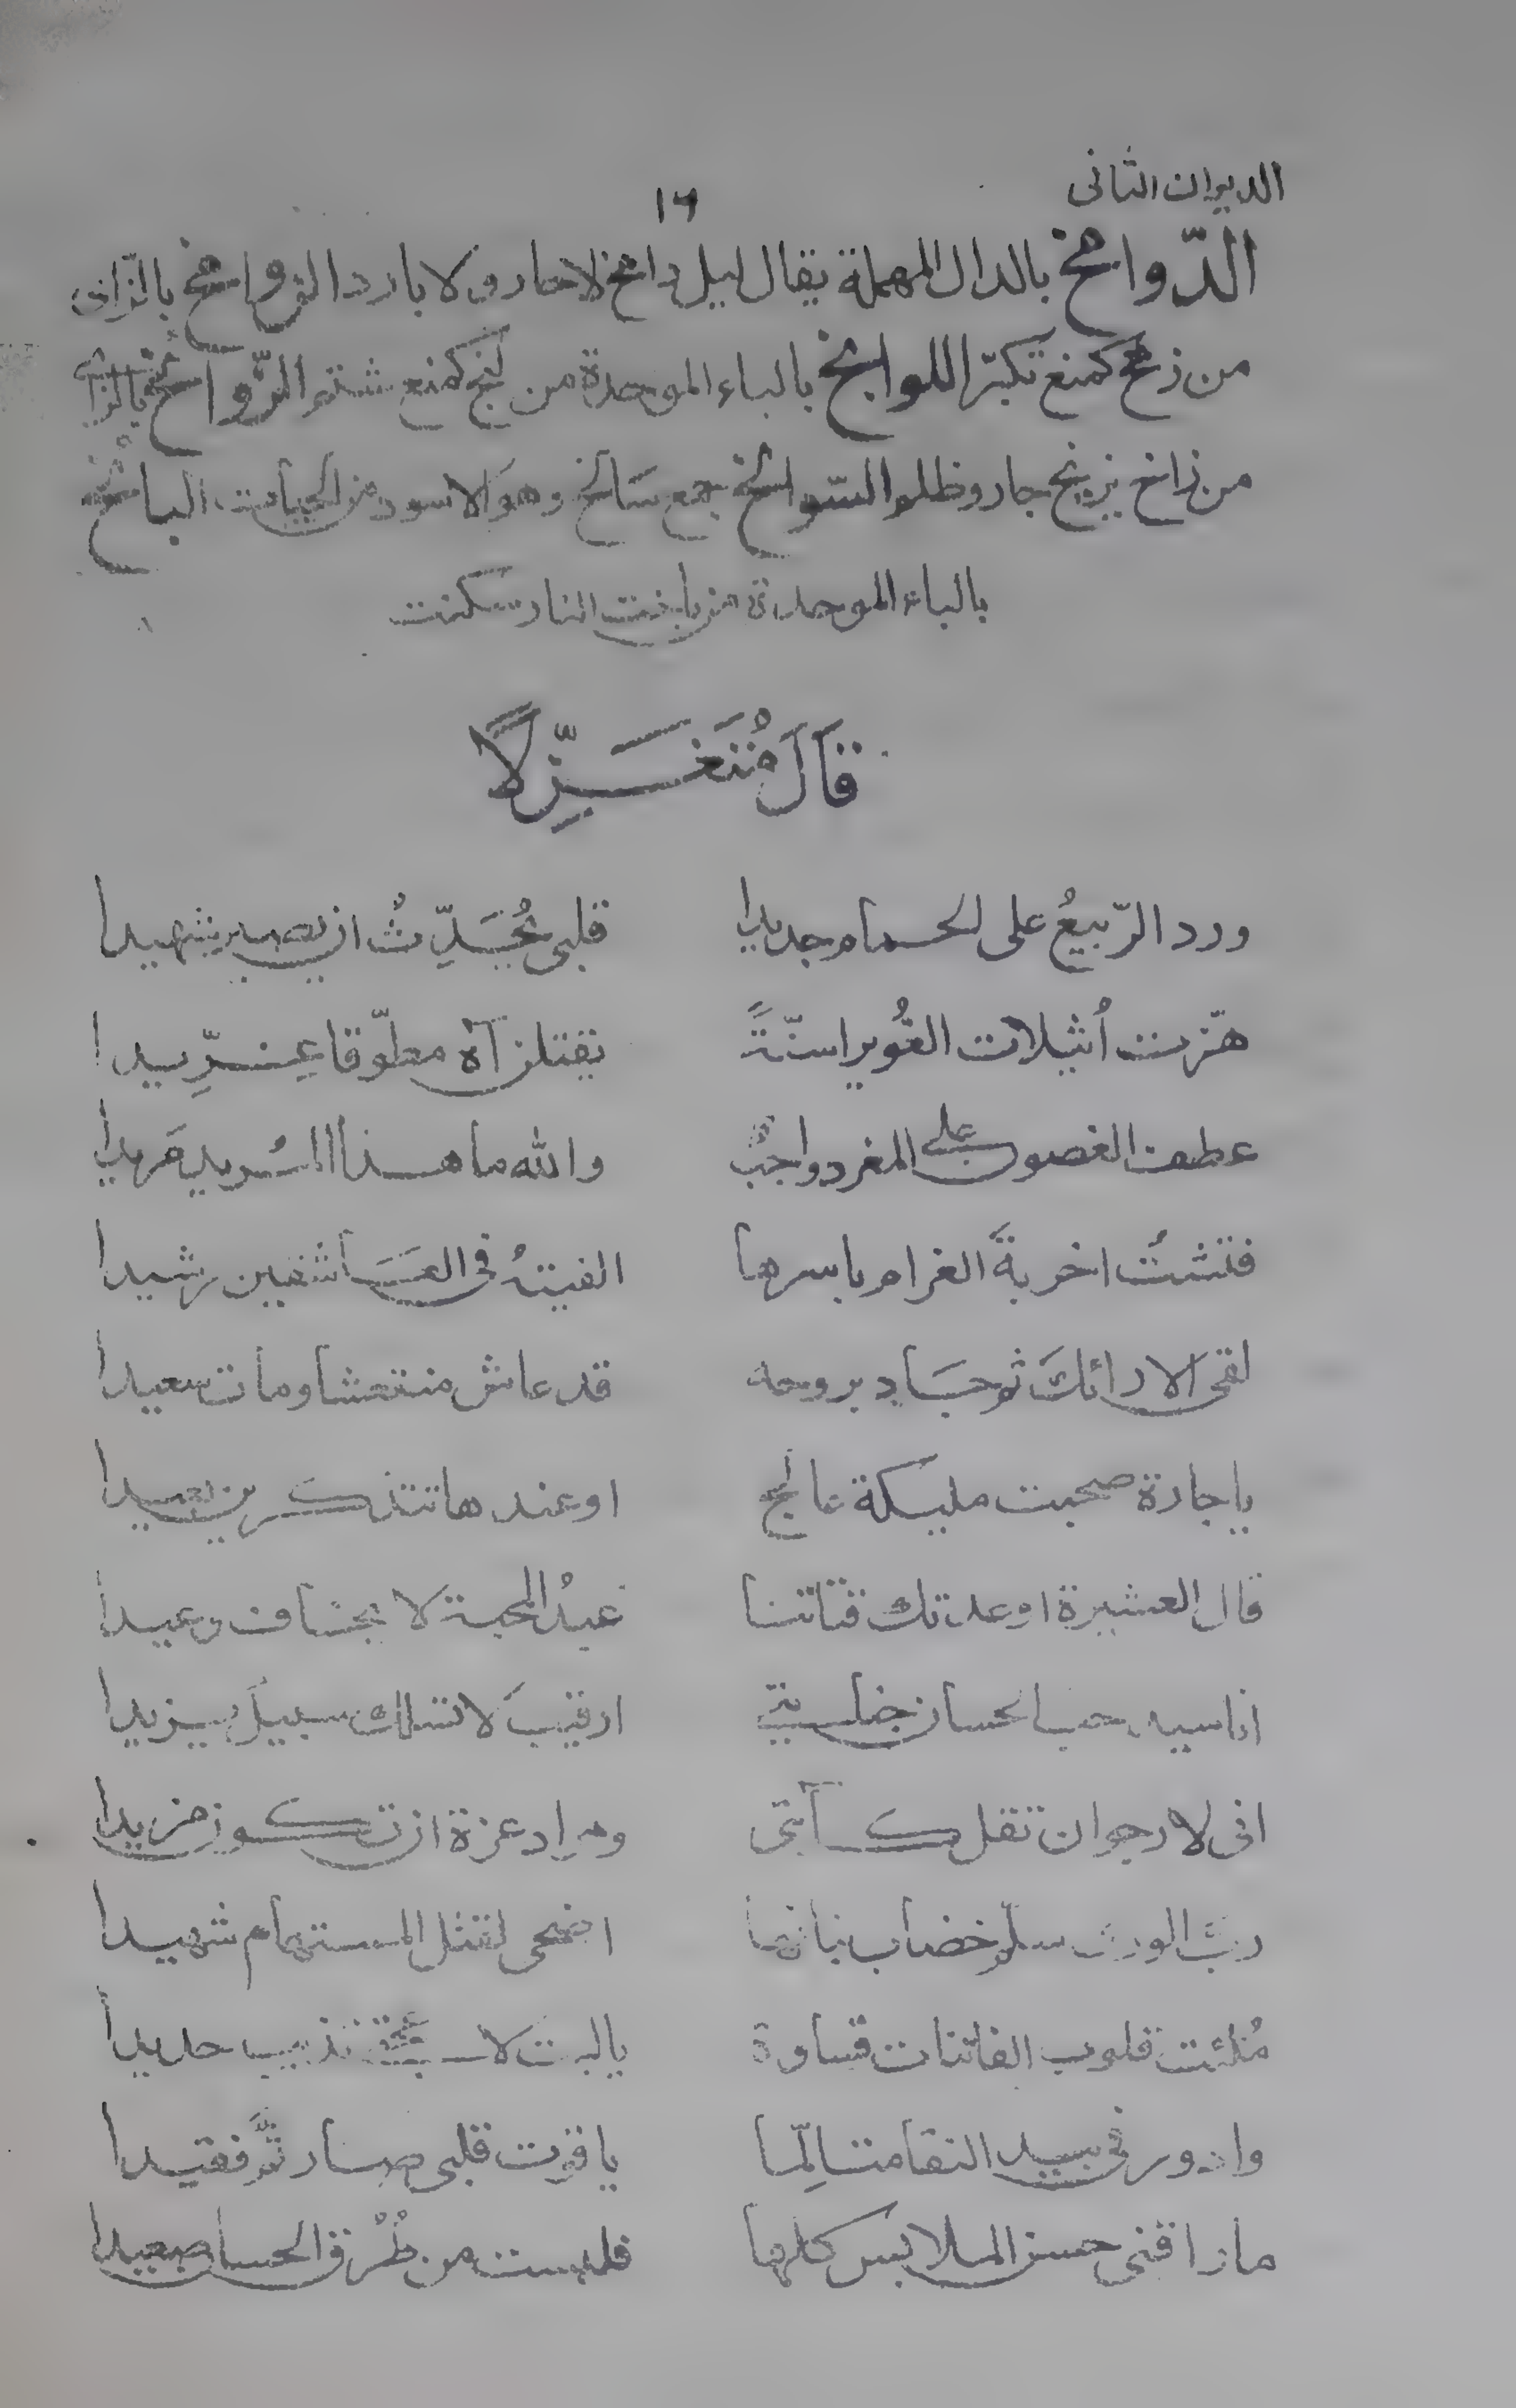 الديوان الثانى
١٦
الدّوامخ بالدال المهملة يقال ليل دامخ لا حار ولا بارد الزوامخ بالزاى
من زمخ كمنع تكبّر اللوابخ بالباء الموحدة من لبخ كمنع شتم الزّوائخ بالزاى
من زاخ يزيخ جار وظلم السّوالخ جمع سَالخ وهو الاسود من الحيات البائخ
بالباء الموحدة من باخت النار سكنت
قَالَ مُتَغَزِّلًا
ورد الرّبيعُ على الحمام جديدا
قلبى يُحَدِّثُ ان يصير شهيدا
هزّت أُثيلات الغُوير اسنّةً
يقتلن آه مطوّقا غِرِّيدا
عطف الغصون على المغرد واجبٌ
والله ما هذا المُريد مَريدا
فتشتُ اخربةَ الغرام باسرها
الفيتهُ فى العَاشقين رشيدا
لقى الارائكَ ثم جَاد بروحه
قد عاش منتعشا ومات سعيدا
يا جارة صحبت مليكة عالج
او عندها تتذكرين بعيدا
قال العشيرة اوعدتك فتاتنا
عبدُ المحبة لا يخاف وعيدا
انا سيد حب الحسان خليقتى
ارقيبَ لا تسلك سبيلَ يزيدا
انى لارجو ان تقل كآبتى
ومراد عزة ان تكون مزيدا
ربَّ الورى سلّم خضاب بنانها
اضحى لقتل المستهام شهيدا
مُلئت قلوب الفاتنات قساوة
يا ليت لا تذيب حديدا
وادور فى بيد النقا متالِّما
يا قوت قلبى صار ثَمَّ فقيدا
ما راقنى حسن الملابس كلها
فلبست من طُرْق الحسان صعيدا